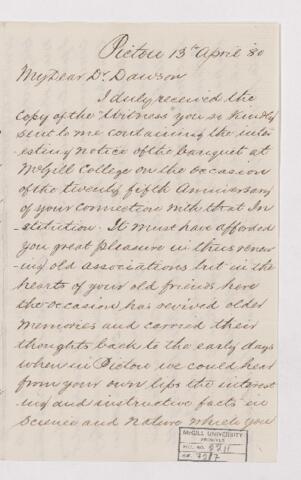 Pictou 13th April 80
My Dear Dr Dawson
I duly received the
Copy of the "Witness" you so kindly
sent to me containing the inter
esting notice of the banquet at
McGill College on the occasion
of the twenty fifth Anniversary
of your connection with that In
stitution. It must have afforded
you great pleasure in thus renew
ing old associations but in the
hearts of your old friends here
the occasion has revived older
memories and carried their
thoughts back to the early days
when in Pictou we could hear
from your own lips the interest
ing and instructive facts in
Science and Nature which you
McGILL UNIVERSITY
ARCHIVES
ACC. NO.
REF.